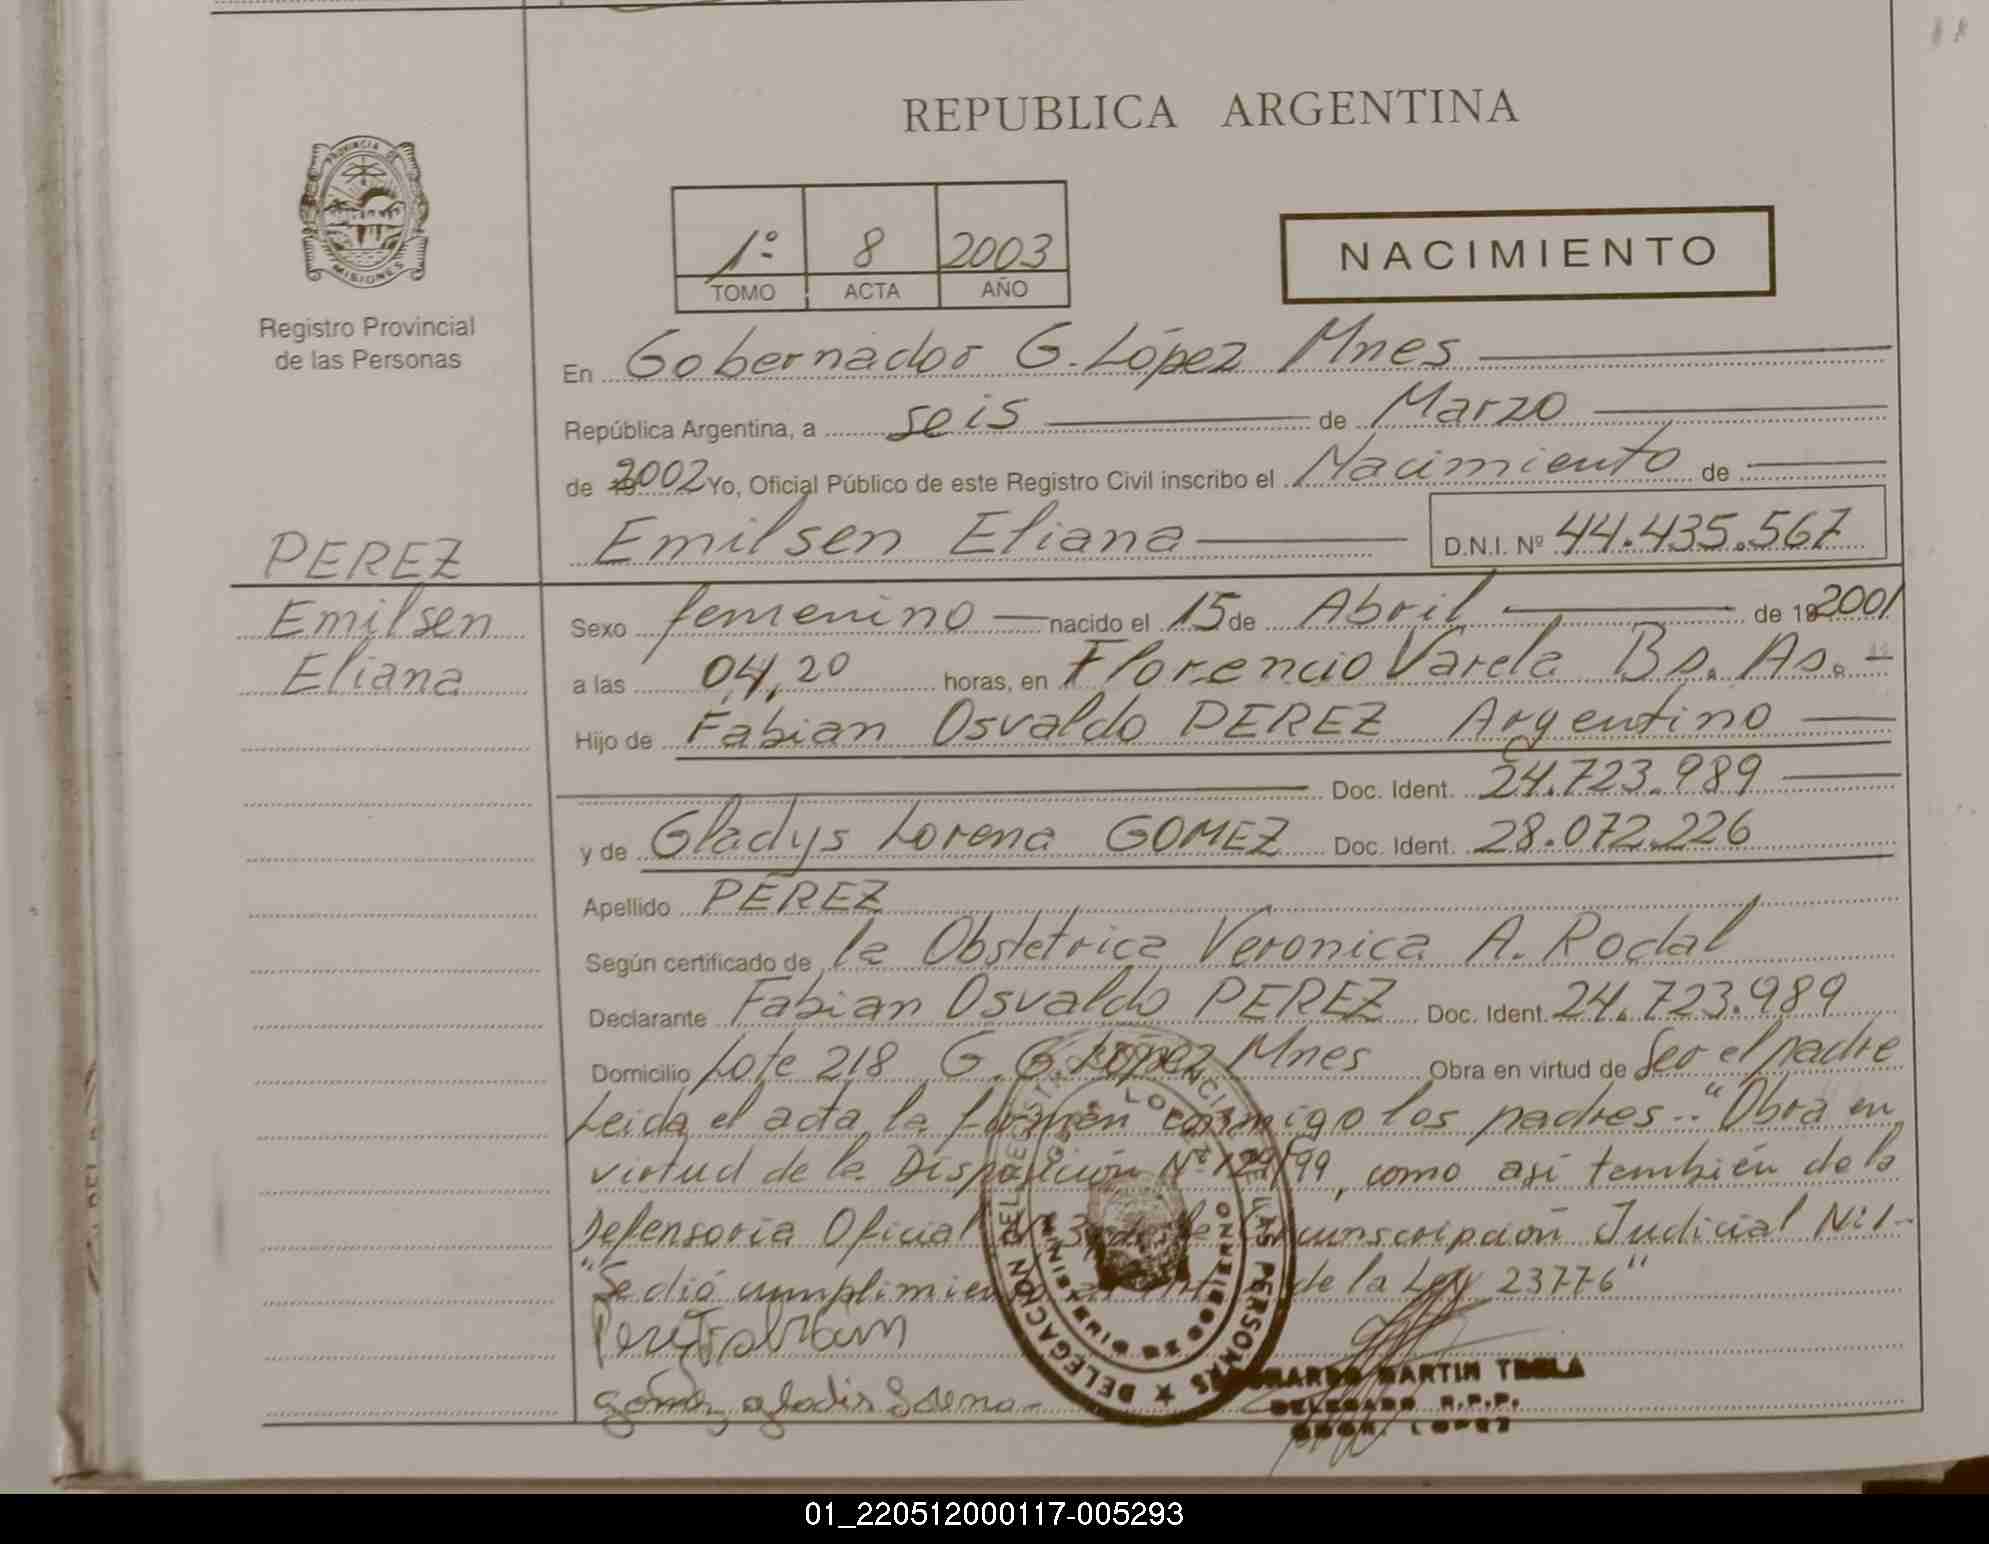 REPUBLICA ARGENTINA
PROVINCIA DE
MISIONES
Registro Provincial
de las Personas
1º 8 2003
TOMO ACTA AÑO
NACIMIENTO
En Gobernador G. López Mnes
República Argentina, a seis de Marzo
de 2002 Yo, Oficial Público de este Registro Civil inscribo el Nacimiento de
PEREZ
Emilsen Eliana D.N.I. Nº 44.435.567
Emilsen
Eliana
Sexo femenino nacido el 15 de Abril de 19 2001
a las 04,20 horas, en Florencio Varela Bs. As. -
Hijo de Fabian Osvaldo PEREZ Argentino
Doc. Ident. 24.723.989
y de Gladys Lorena GOMEZ Doc. Ident. 28.072.226
Apellido PEREZ
Según certificado de la Obstetrica Veronica A. Rodal
Declarante Fabian Osvaldo PEREZ Doc. Ident. 24.723.989
Domicilio Lote 218 G. G. López Mnes Obra en virtud de Ser el padre
Leida el acta la firman conmigo los padres.- "Obra en
virtud de la Disposición Nº 129/99, como asi también de la
Defensoria Oficial Nº 3 de la Circunscripción Judicial Nº 1-
"Se dió cumplimiento de la Ley 23776"
Perez Fabian
Gomez gladis Lorena
DELEGACION DEL REGISTRO PROVINCIAL DE LAS PERSONAS
MARTIN TESLA
DELEGADO R.P.P.
GDOR. LOPEZ
01_220512000117-005293